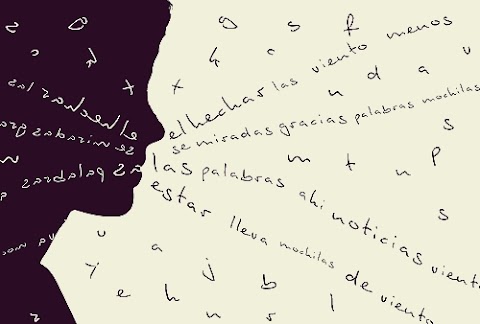 g s f
h c n d a v
x
el hechar las viento menos
se miradas gracias palabras mochilas
s
m t n p
las palabras ahi noticias viento
estar lleva mochilas de viento
s
v a
y e h j b
n s l